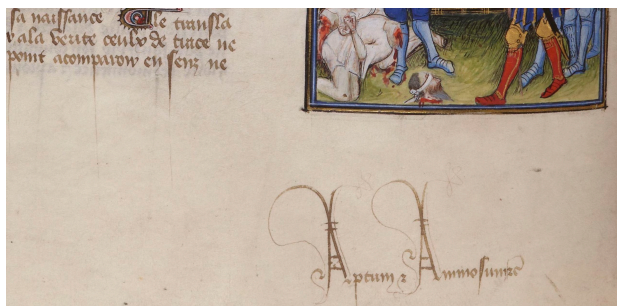 sa naissance le transla
a la verite ceulx de turce ne
point acomparoir en sens ne
Aptum